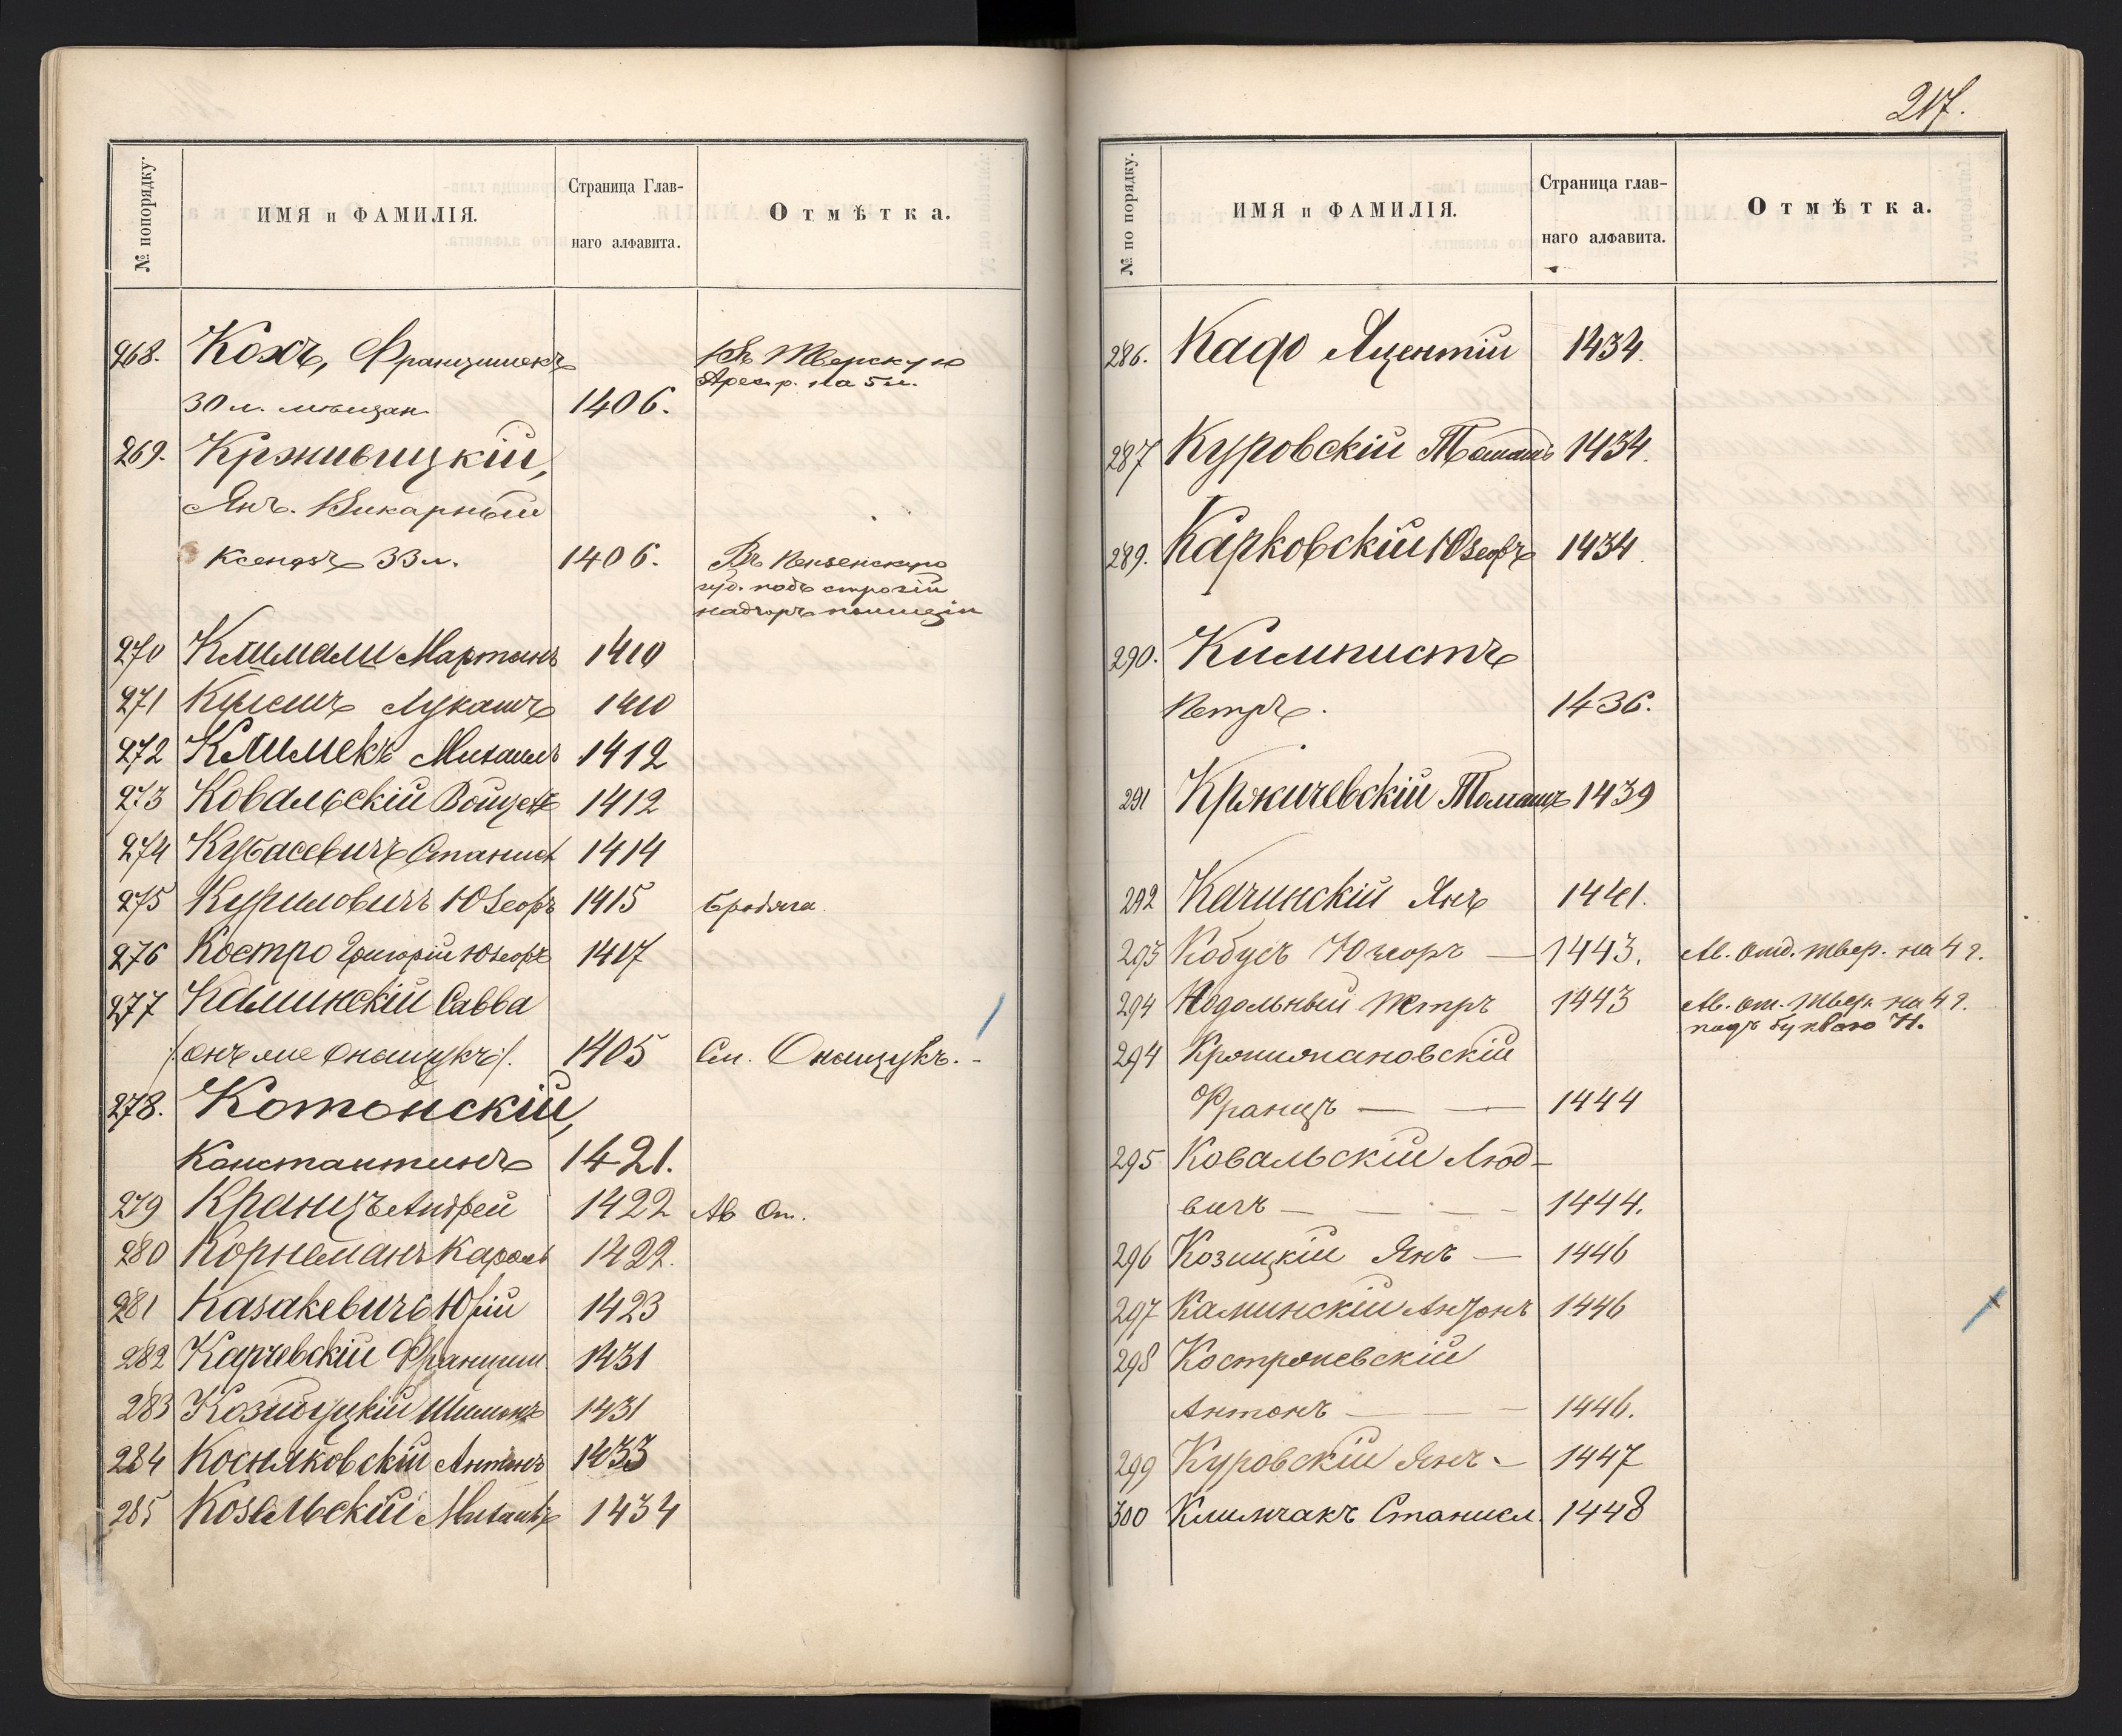 № попорядку.
ИМЯ и ФАМИЛІЯ.
Страница Глав-
наго алфавита.
Отмѣтка.
268. Кохъ, Францишекъ Въ Тверскую
Арест. р. на 5 л.
30 л. мѣщан. 1406.
269. Крживицкій,
Янъ. Викарный
Ксендзъ 33 л. 1406. Въ Пензенскую
губ. подъ строгій
надзоръ полиціи
270 Климали Мартынъ 1410
271 Лукашъ 1410
272 Климекъ Михаилъ 1412
273 Ковальскій Войцехъ 1412
274 Кубасевичъ Станисл 1414
275 Куриловичъ Юзефъ 1415 бродяга.
276 Костро Григорій Юзефъ 1417
277 Калинскій Савва
(онъ же Онищукъ). 1405 См. Онищукъ. -
278. Котонскій,
Константинъ 1421.
279 Кранцъ Андрей 1422 Ав От.
280 Корнеманъ Кароль 1422.
281 Казакевичъ Юрій 1423
282 Карчевскій Франциш. 1431
283 Шимонъ 1431
284 Косняковскій Антонъ 1433
285 Козельскій Михаилъ 1434
217.
№ по порядку.
ИМЯ и ФАМИЛІЯ.
Страница глав-
наго алфавита.
Отмѣтка.
286. Кадо Яцентій 1434.
287 Куровскій Томашъ 1434.
289. Карковскій Юзефъ 1434.
290. Кимпистъ
Петръ. 1436.
291 Кржичевскій Томашъ 1439
292 Качинскій Янъ 1441.
293 Кобусъ Юзефъ — 1443. Ав. отд. твер. на 4 г.
294 Надольный Петръ 1443 Ав. от. Твер. на 4 г.
подъ буквою Н.
294 Кржижановскій
Францъ — — 1444
295 Ковальскій Люд-
вигъ — — - - 1444.
296 Козицкій Янъ — 1446
297 Каминскій Антонъ 1446
298 Костржевскій
Антонъ — — - 1446.
299 Куровскій Янъ - 1447
300 Климчакъ Станисл. 1448